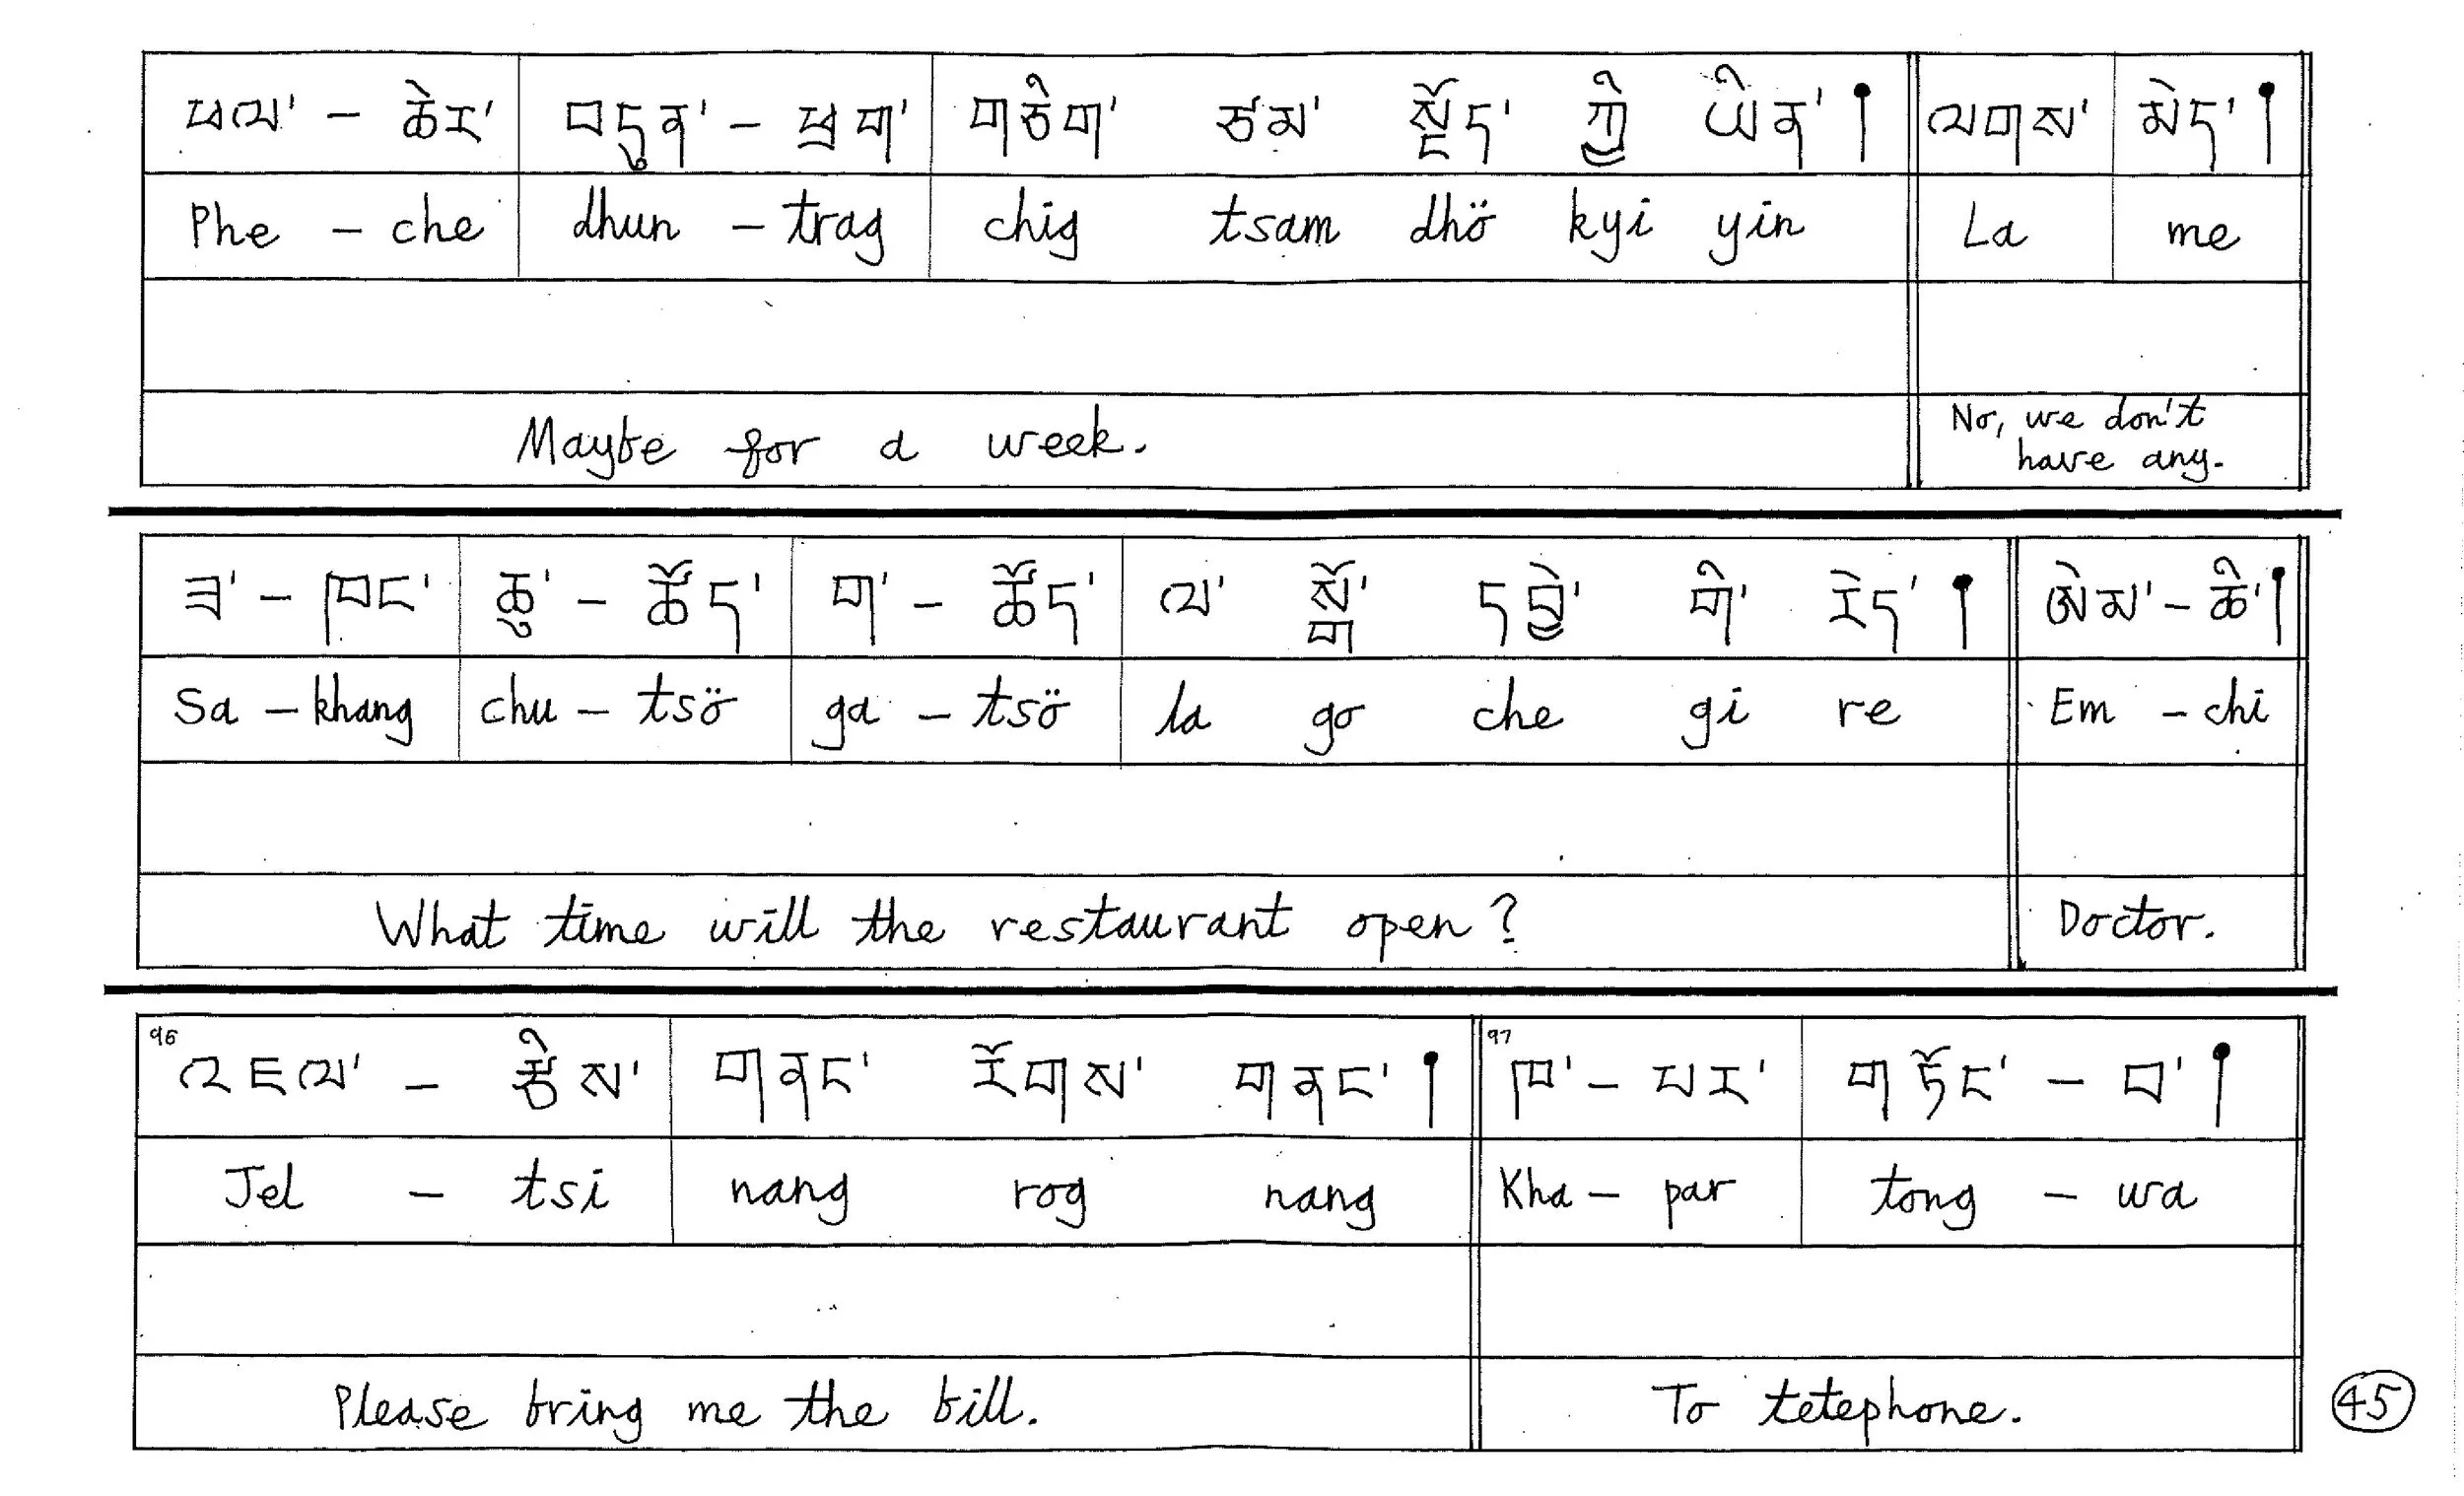 ཕལ་ - ཆེར་ བདུན་ - ཕྲག་ གཅིག་ ཙམ་ སྡོད་ ཀྱི་ ཡིན་། ལགས་ མེད་།
Phe - che dhun - trag chig tsam dhö kyi yin La me
Maybe for a week. No, we don't
have any.
ཟ་ - ཁང་ ཆུ་ - ཚོད་ ག་ - ཚོད་ ལ་ སྒོ་ དབྱེ་ གི་ རེད་། ཨེམ་ - ཆི་།
Sa - khang chu - tsö ga - tsö la go che gi re Em - chi
What time will the restaurant open? Doctor.
96 འཇལ་ - རྩིས་ གནང་ རོགས་ གནང་། 97 ཁ་ - པར་ གཏོང་ - བ་།
Jel - tsi nang rog nang Kha - par tong - wa
Please bring me the bill. To tetephone.
45